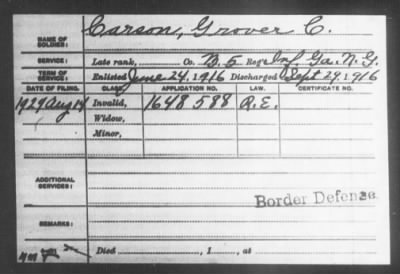 NAME OF SOLDIER: Carson, Grover C.
SERVICE: Late rank, Co. B. 5 Reg't Inf. Ga. N. G.
TERM OF SERVICE: Enlisted June 24, 1916 Discharged Sept 29, 1916
DATE OF FILING. CLASS. APPLICATION NO. LAW. CERTIFICATE NO.
1929 Aug 14 Invalid, 1648 588 R. E.
Widow,
Minor,
ADDITIONAL SERVICES:
Border Defense
REMARKS:
Died , 1 , at